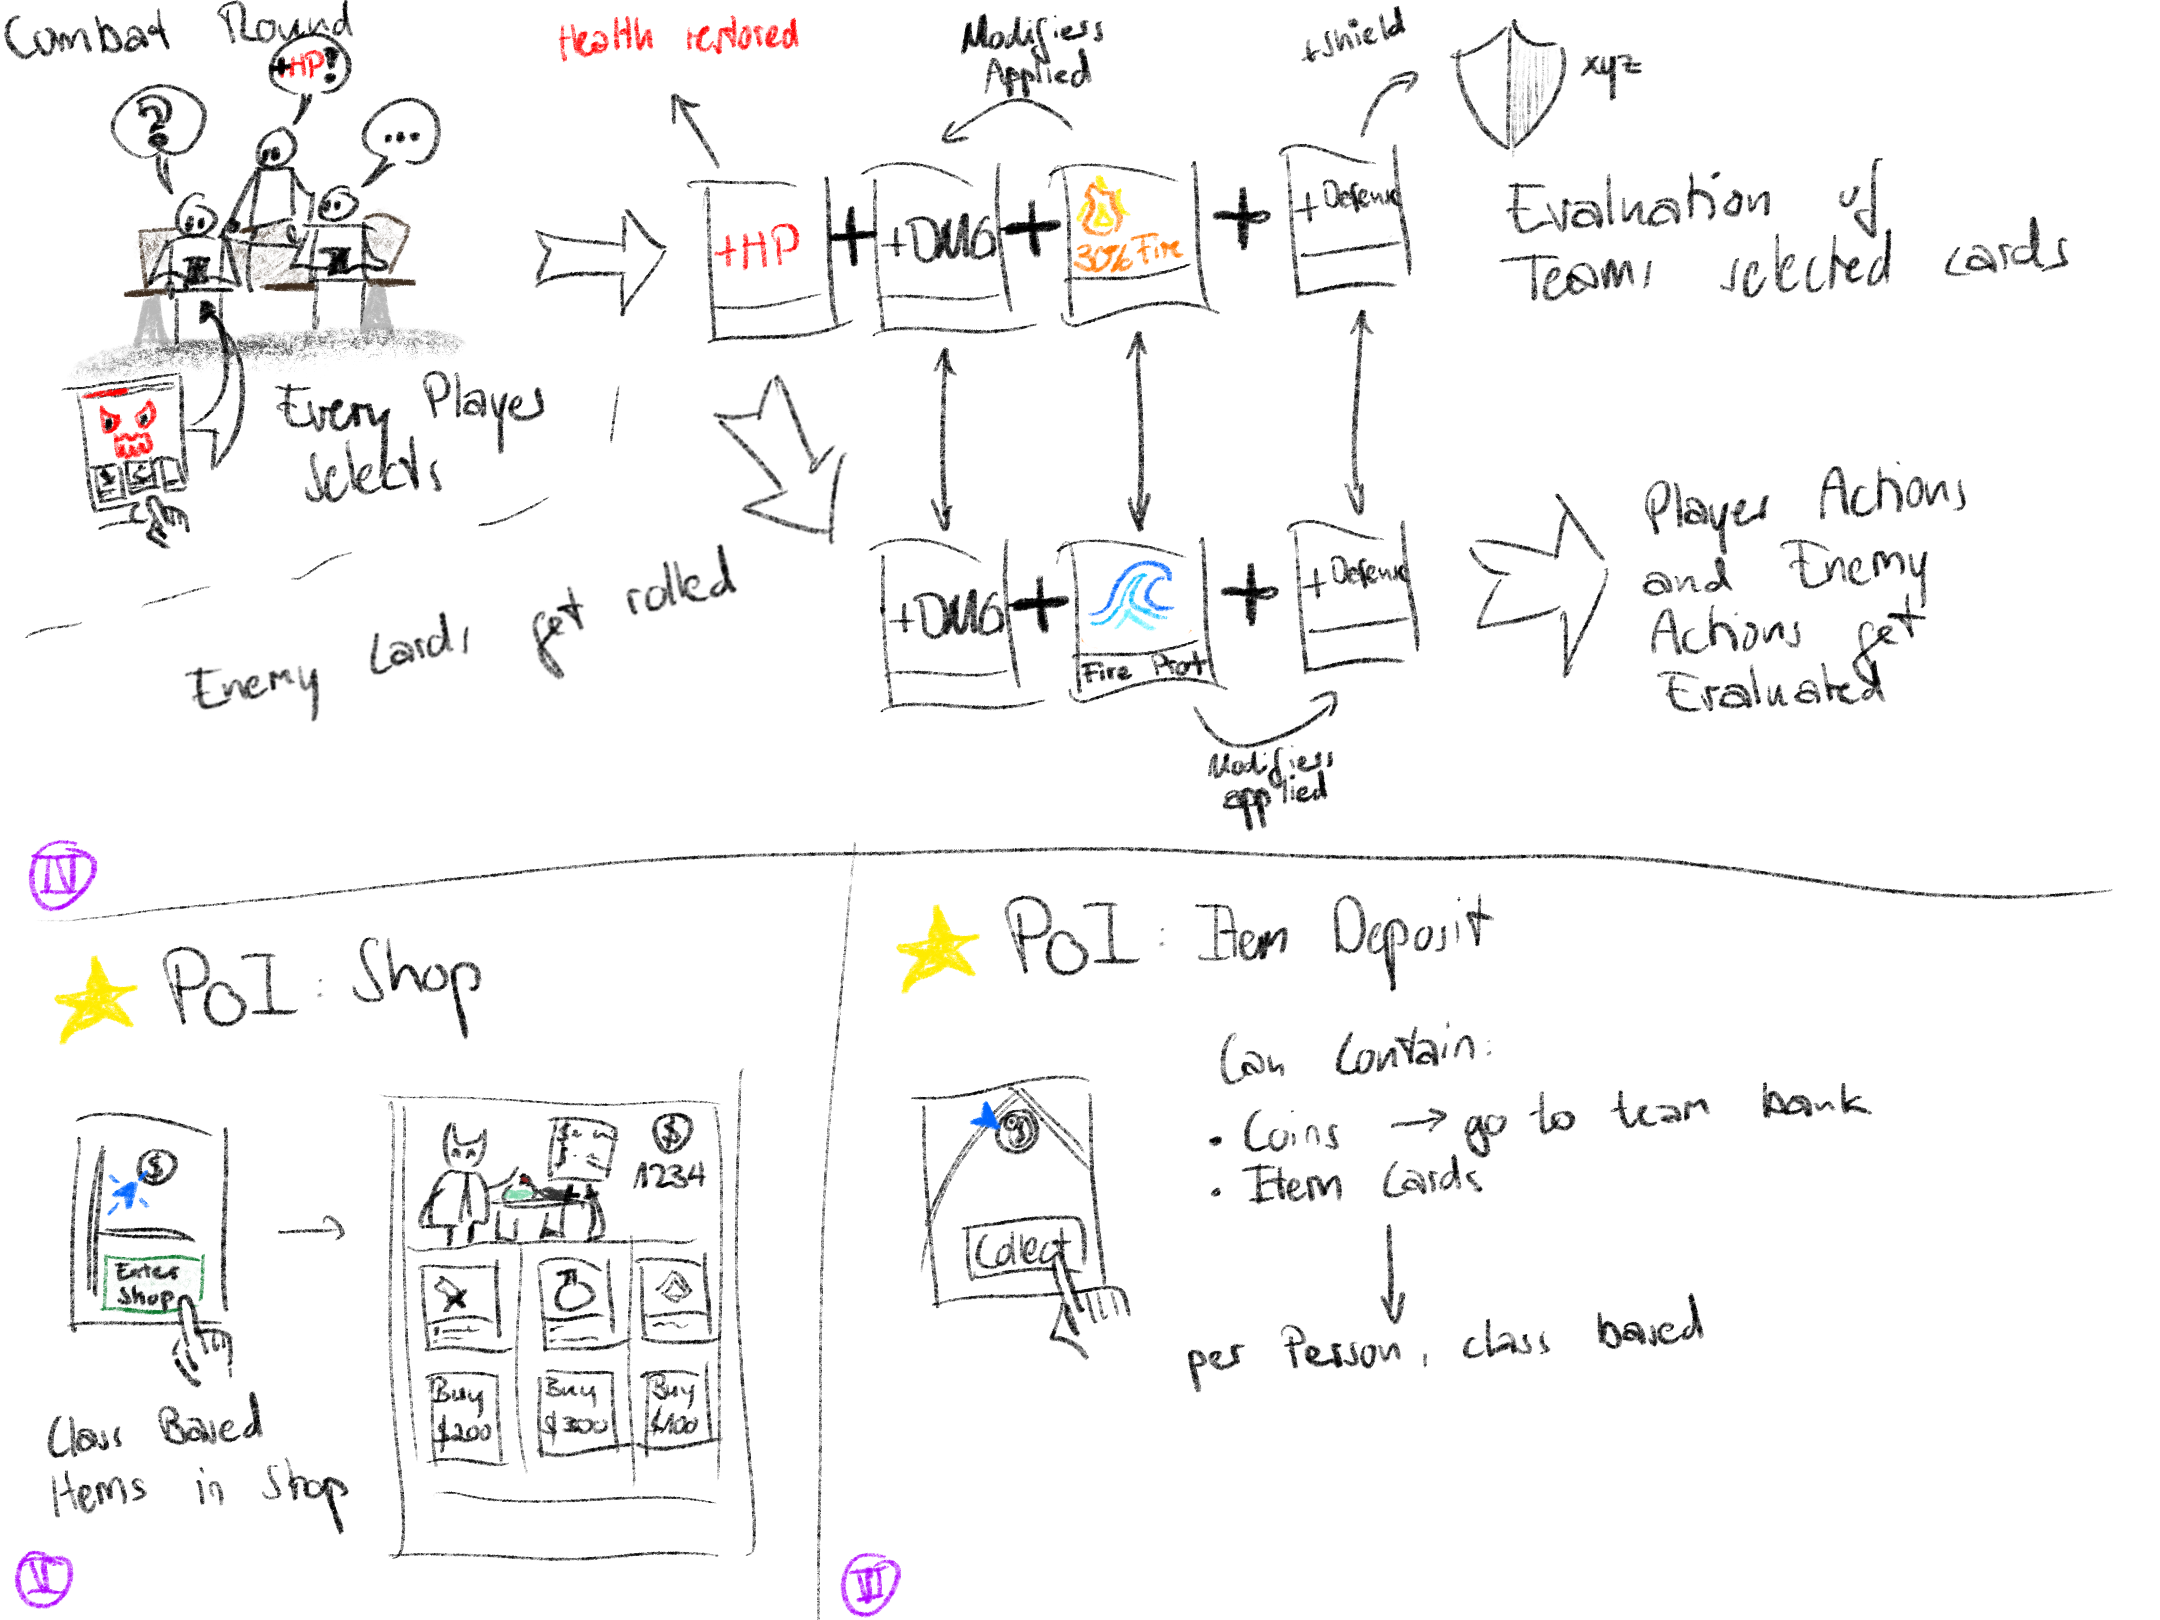 Combat Round
+HP!
?
...
Health restored
Modifiers
Applied
+shield
xyz
+HP
+
+DMG
+
30% Fire
+
+Defense
Evaluation of
Teams selected cards
Every Player
selects
Enemy Cards get rolled
+DMG
+
Fire Prot
+
+Defense
Modifiers
applied
Player Actions
and Enemy
Actions get
Evaluated
IV
PoI: Shop
$
Enter
Shop
Class Based
Items in Shop
$
1234
Buy
$200
Buy
$300
Buy
$100
V
PoI: Item Deposit
Can Contain:
• Coins → go to team bank
• Item Cards
per Person, class based
$
Collect
VI